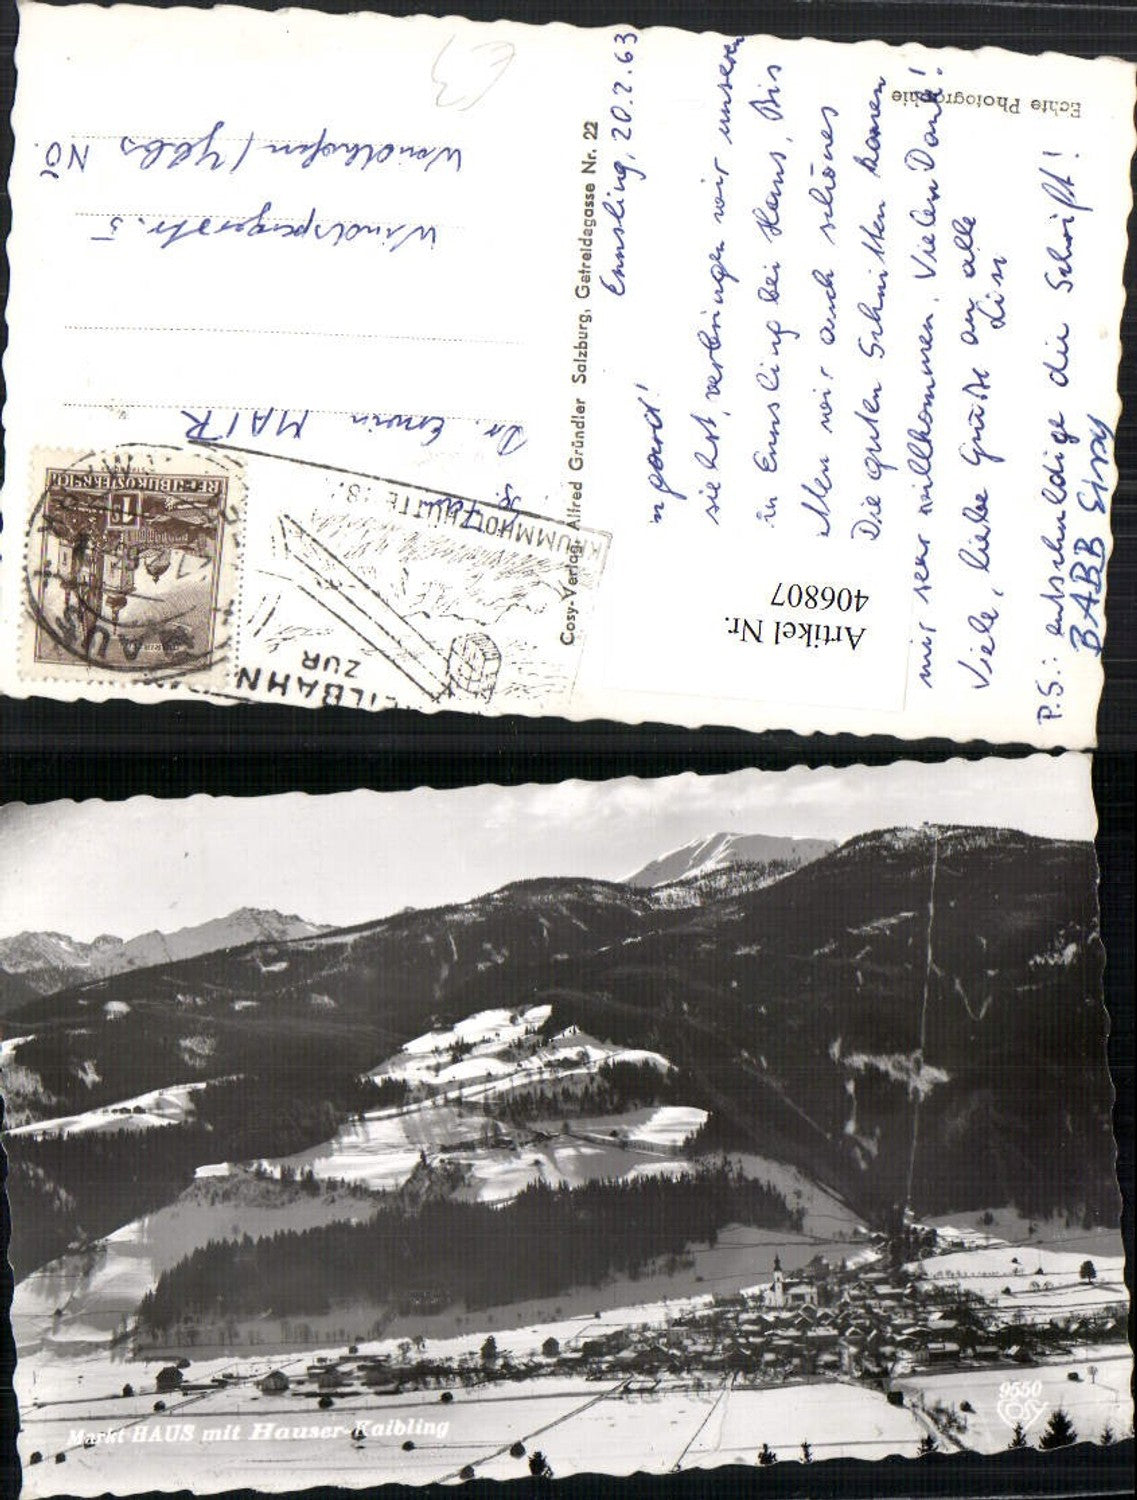 Echte Photographie
Ennsling, 20.2.63
sie hst, verbringen wir unseren
in Ennsling bei Haus, Bis
wir auch schönes
Die guten Schnitten kamen
mir sehr willkommen. Vielen Dank!
Viele, liebe Grüße an alle
Lisi
P.S.: entschuldige die Schrift!
BABB Sissy
Artikel Nr.
406807
Cosy-Verlag Alfred Gründler Salzburg, Getreidegasse Nr. 22
SEILBAHN
ZUR
KRUMMHOLZHÜTTE
HAUS
REPUBLIK ÖSTERREICH
1
Dr. Erwin MAIR
Windspergerstr. 5
Waidhofen / Ybbs NÖ.
Markt HAUS mit Hauser-Kaibling
9550
COSY